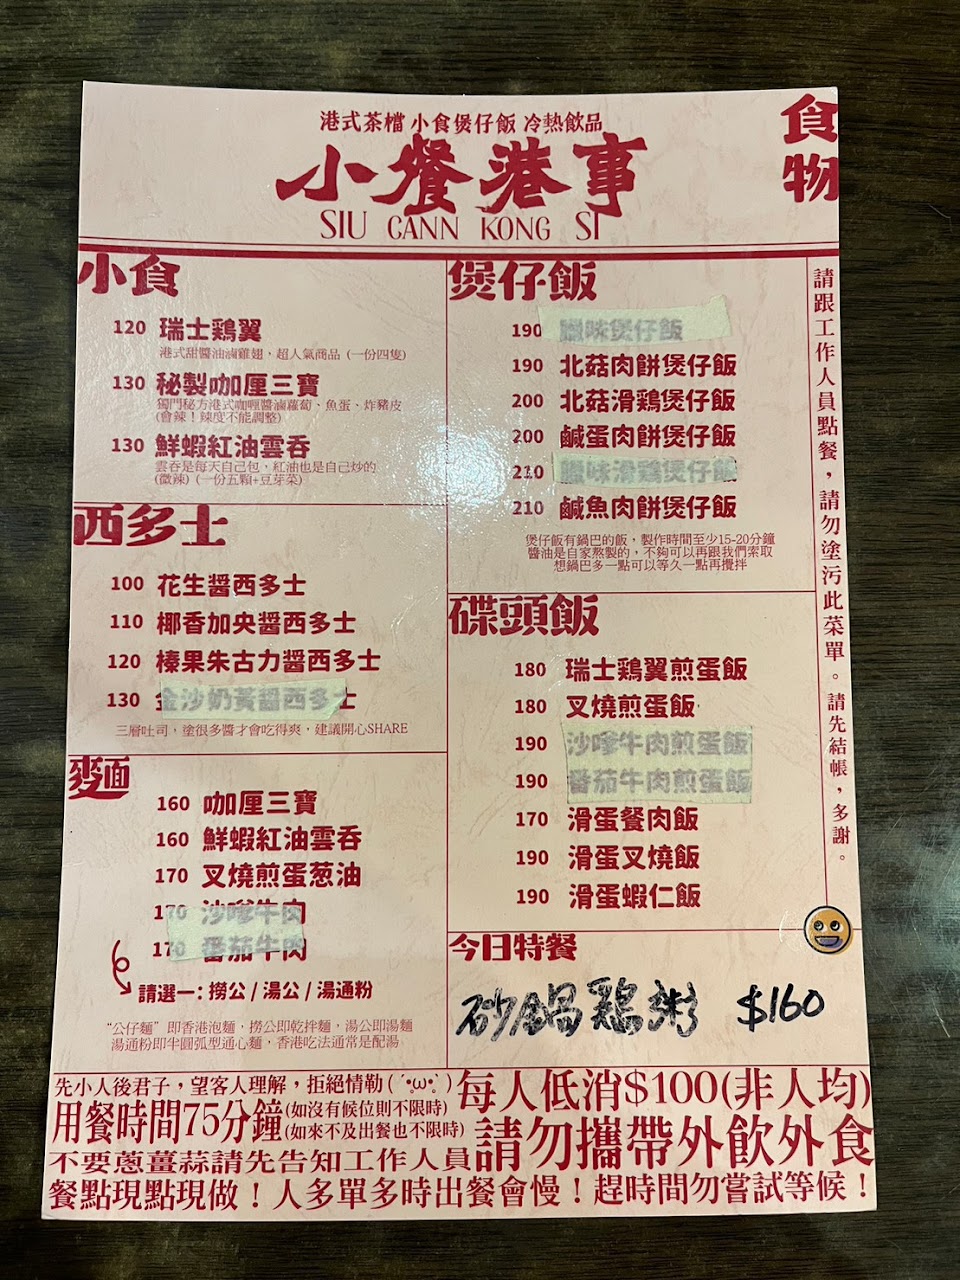 港式茶檔 小食煲仔飯 冷熱飲品
小餐港事
SIU CANN KONG SI
食物
小食
120 瑞士鷄翼
港式甜醬油滷雞翅，超人氣商品 (一份四隻)
130 秘製咖厘三寶
獨門秘方港式咖喱醬滷蘿蔔、魚蛋、炸豬皮
(會辣！辣度不能調整)
130 鮮蝦紅油雲吞
雲吞是每天自己包，紅油也是自己炒的
(微辣) (一份五顆+豆芽菜)
西多士
100 花生醬西多士
110 椰香加央醬西多士
120 榛果朱古力醬西多士
130 金沙奶黃醬西多士
三層吐司，塗很多醬才會吃得爽，建議開心SHARE
麵
160 咖厘三寶
160 鮮蝦紅油雲吞
170 叉燒煎蛋葱油
170 沙嗲牛肉
170 番茄牛肉
請選一：撈公 / 湯公 / 湯通粉
“公仔麵”即香港泡麵，撈公即乾拌麵，湯公即湯麵
湯通粉即半圓弧型通心麵，香港吃法通常是配湯
煲仔飯
190 臘味煲仔飯
190 北菇肉餅煲仔飯
200 北菇滑鷄煲仔飯
200 鹹蛋肉餅煲仔飯
210 臘味滑鷄煲仔飯
210 鹹魚肉餅煲仔飯
煲仔飯有鍋巴的飯，製作時間至少15-20分鐘
醬油是自家熬製的，不夠可以再跟我們索取
想鍋巴多一點可以等久一點再攪拌
碟頭飯
180 瑞士鷄翼煎蛋飯
180 叉燒煎蛋飯
190 沙嗲牛肉煎蛋飯
190 番茄牛肉煎蛋飯
170 滑蛋餐肉飯
190 滑蛋叉燒飯
190 滑蛋蝦仁飯
今日特餐
砂鍋鷄粥 $160
請跟工作人員點餐，請勿塗污此菜單。請先結帳，多謝。
先小人後君子，望客人理解，拒絕情勒 (´•ω•`)
每人低消$100(非人均)
用餐時間75分鐘(如沒有候位則不限時)
(如來不及出餐也不限時)
請勿攜帶外飲外食
不要蔥薑蒜請先告知工作人員
餐點現點現做！人多單多時出餐會慢！趕時間勿嘗試等候！